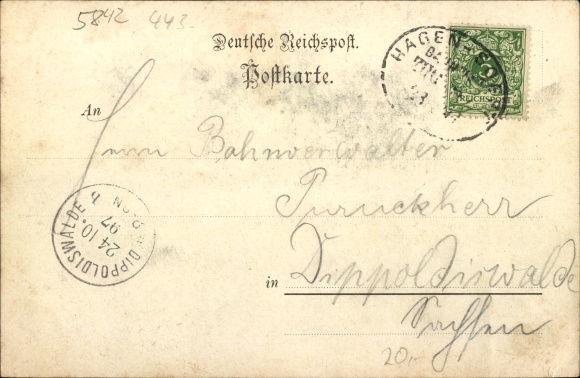 5842 443.
Deutsche Reichspost.
Postkarte.
HAGEN-SOEST
REICHSPOST
An
Herrn Bahnverwalter
Puruckherr
in Dippoldiswalde
Sachsen
DIPPOLDISWALDE
24 10.
97
20,-